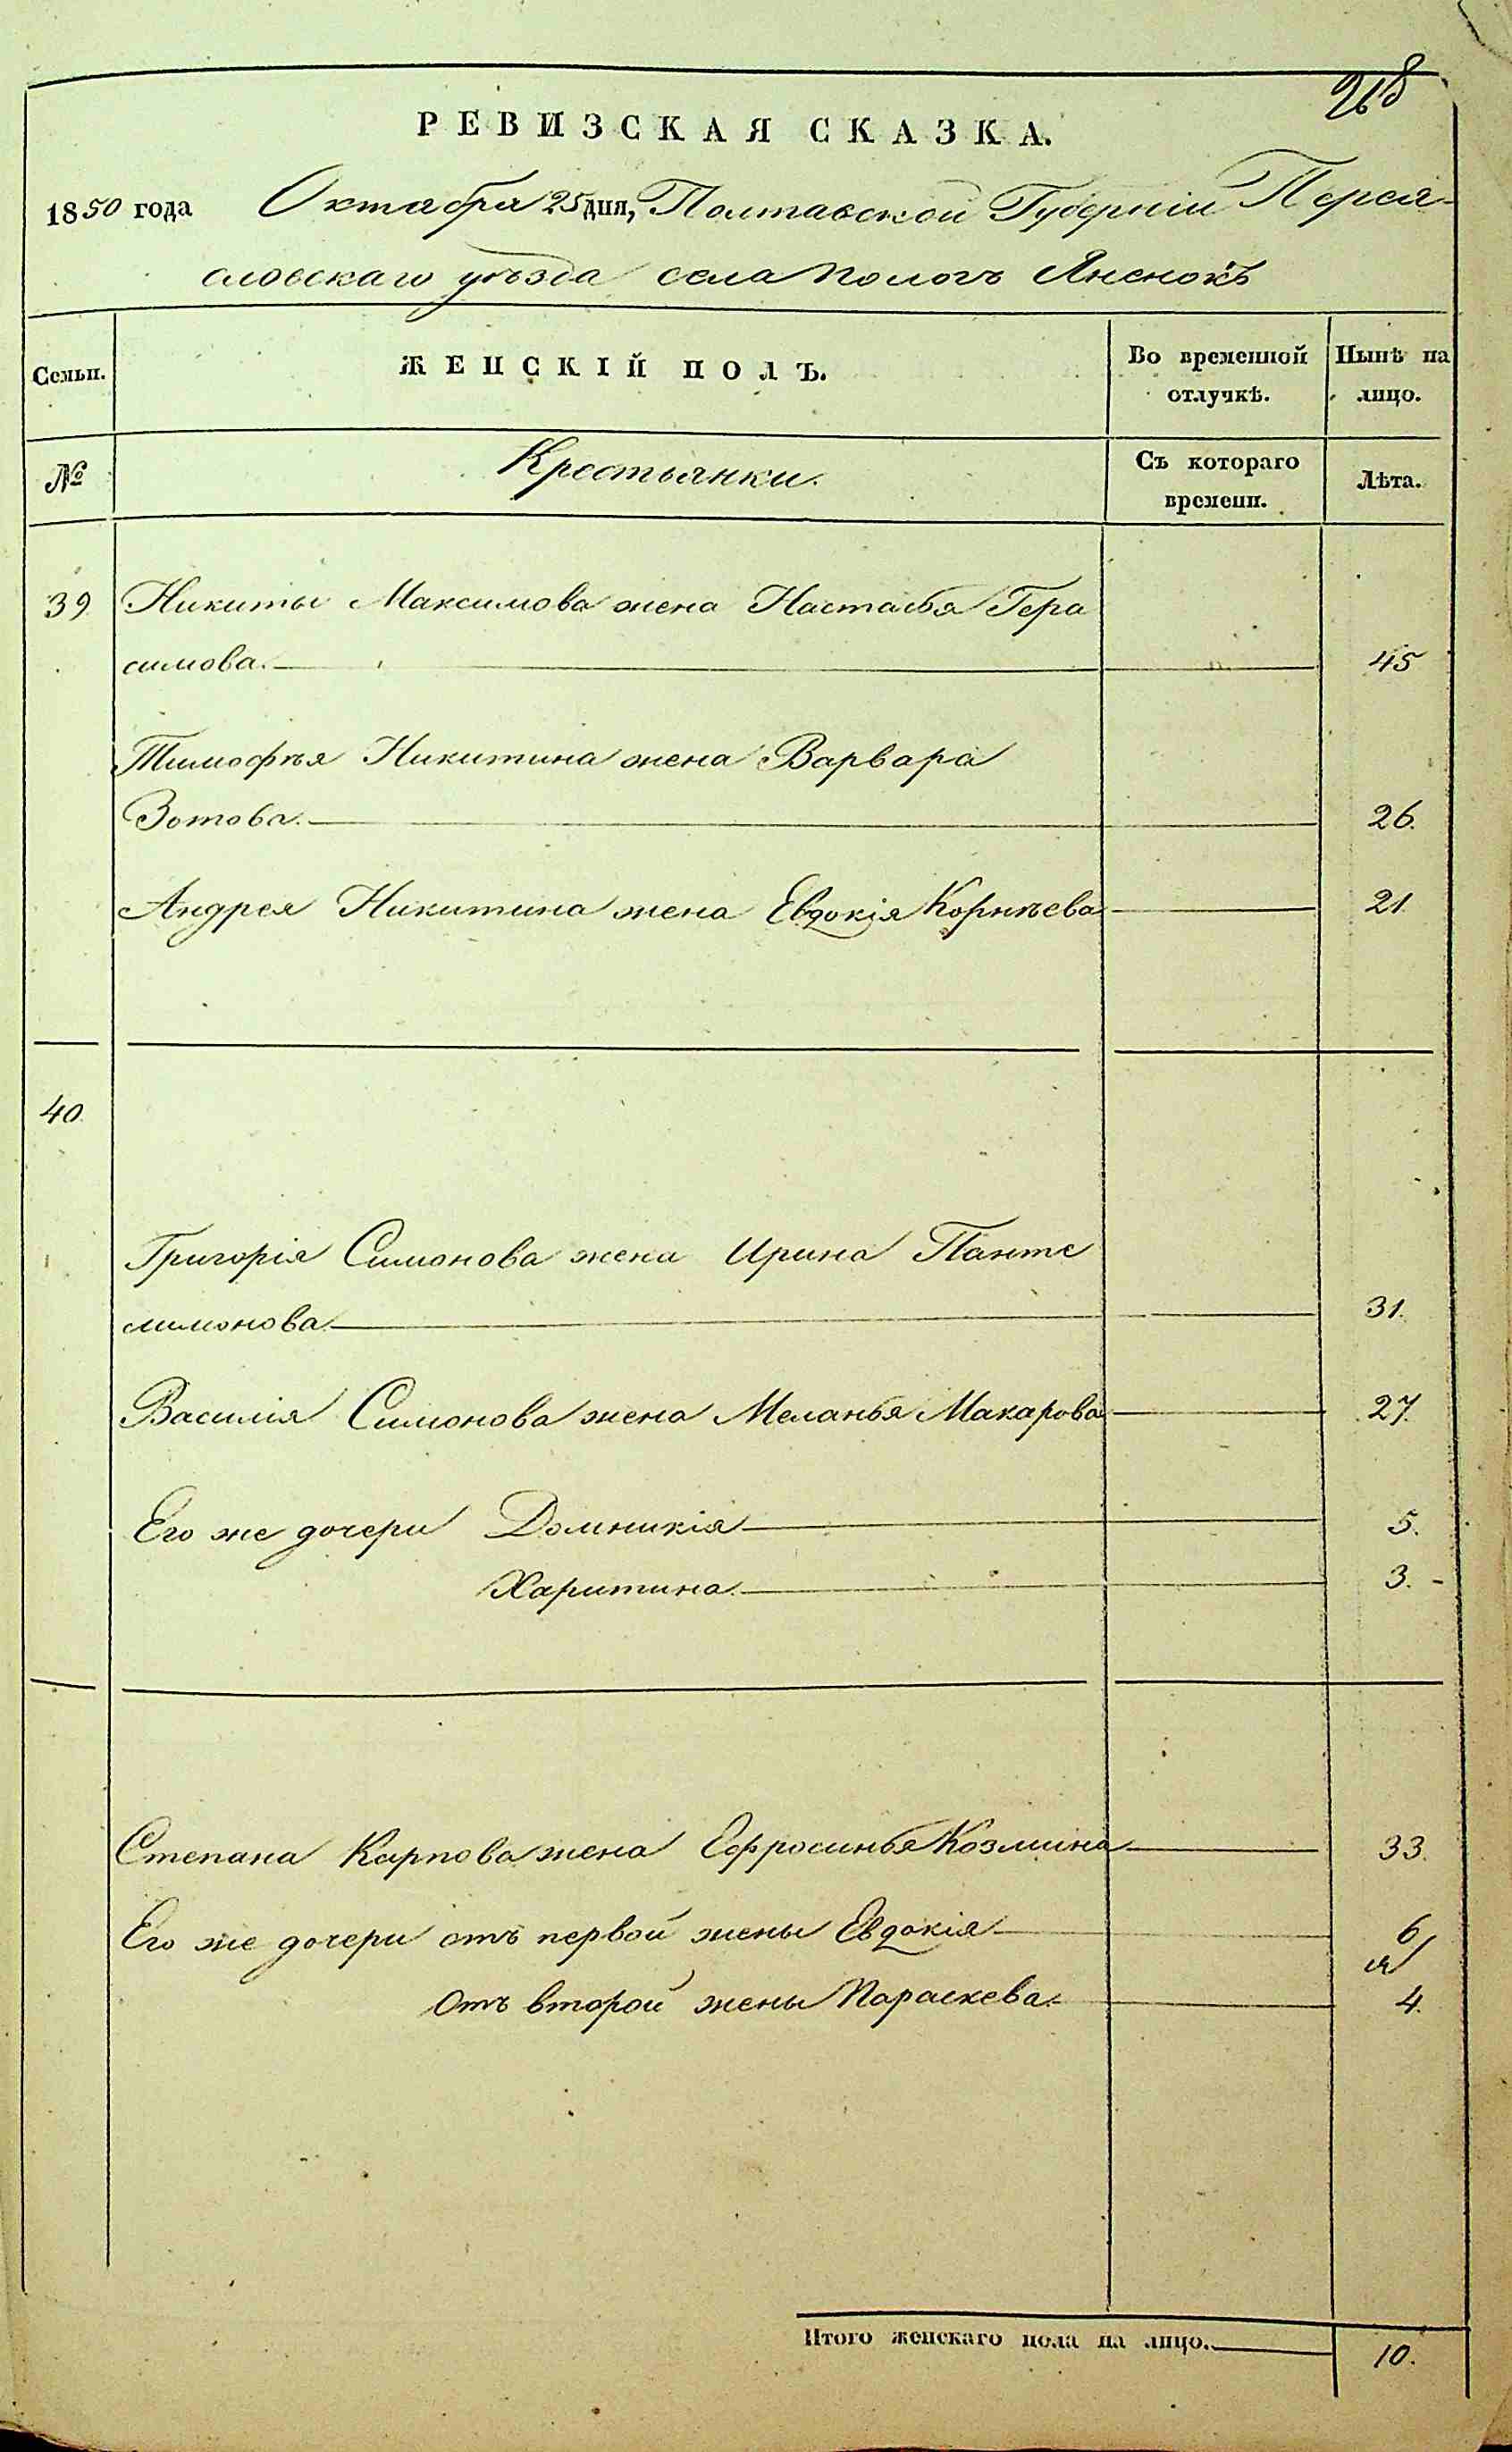 268
РЕВИЗСКАЯ СКАЗКА.
1850 года Октября 25 дня, Полтавской Губерніи Перея-
словскаго уѣзда села Пологъ Яненокъ
Семьи. ЖЕНСКІЙ ПОЛЪ. Во временной отлучкѣ. Нынѣ на лицо.
№ Крестьянки. Съ котораго времени. Лѣта.
39 Никиты Максимова жена Настасья Гера
симова. 45
Тимофѣя Никитина жена Варвара
Зотова. 26.
Андрея Никитина жена Евдокія Корнѣева 21.
40.
Григорія Симонова жена Ирина Панте
лимонова 31.
Василія Симонова жена Меланья Макарова 27.
Его же дочери Домникія 5.
Харитина. 3.
Степана Карпова жена Ефросинья Козмина 33.
Его же дочери отъ первой жены Евдокія 6
Отъ второй жены Параскева. 4.
Итого женскаго пола на лицо. 10.